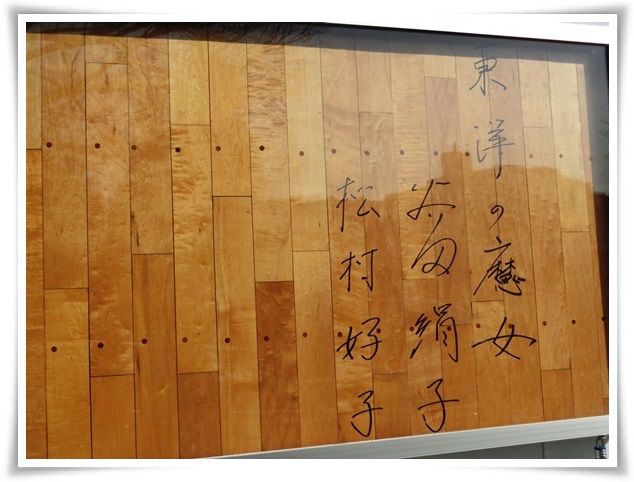 東洋の魔女
谷田絹子
松村好子